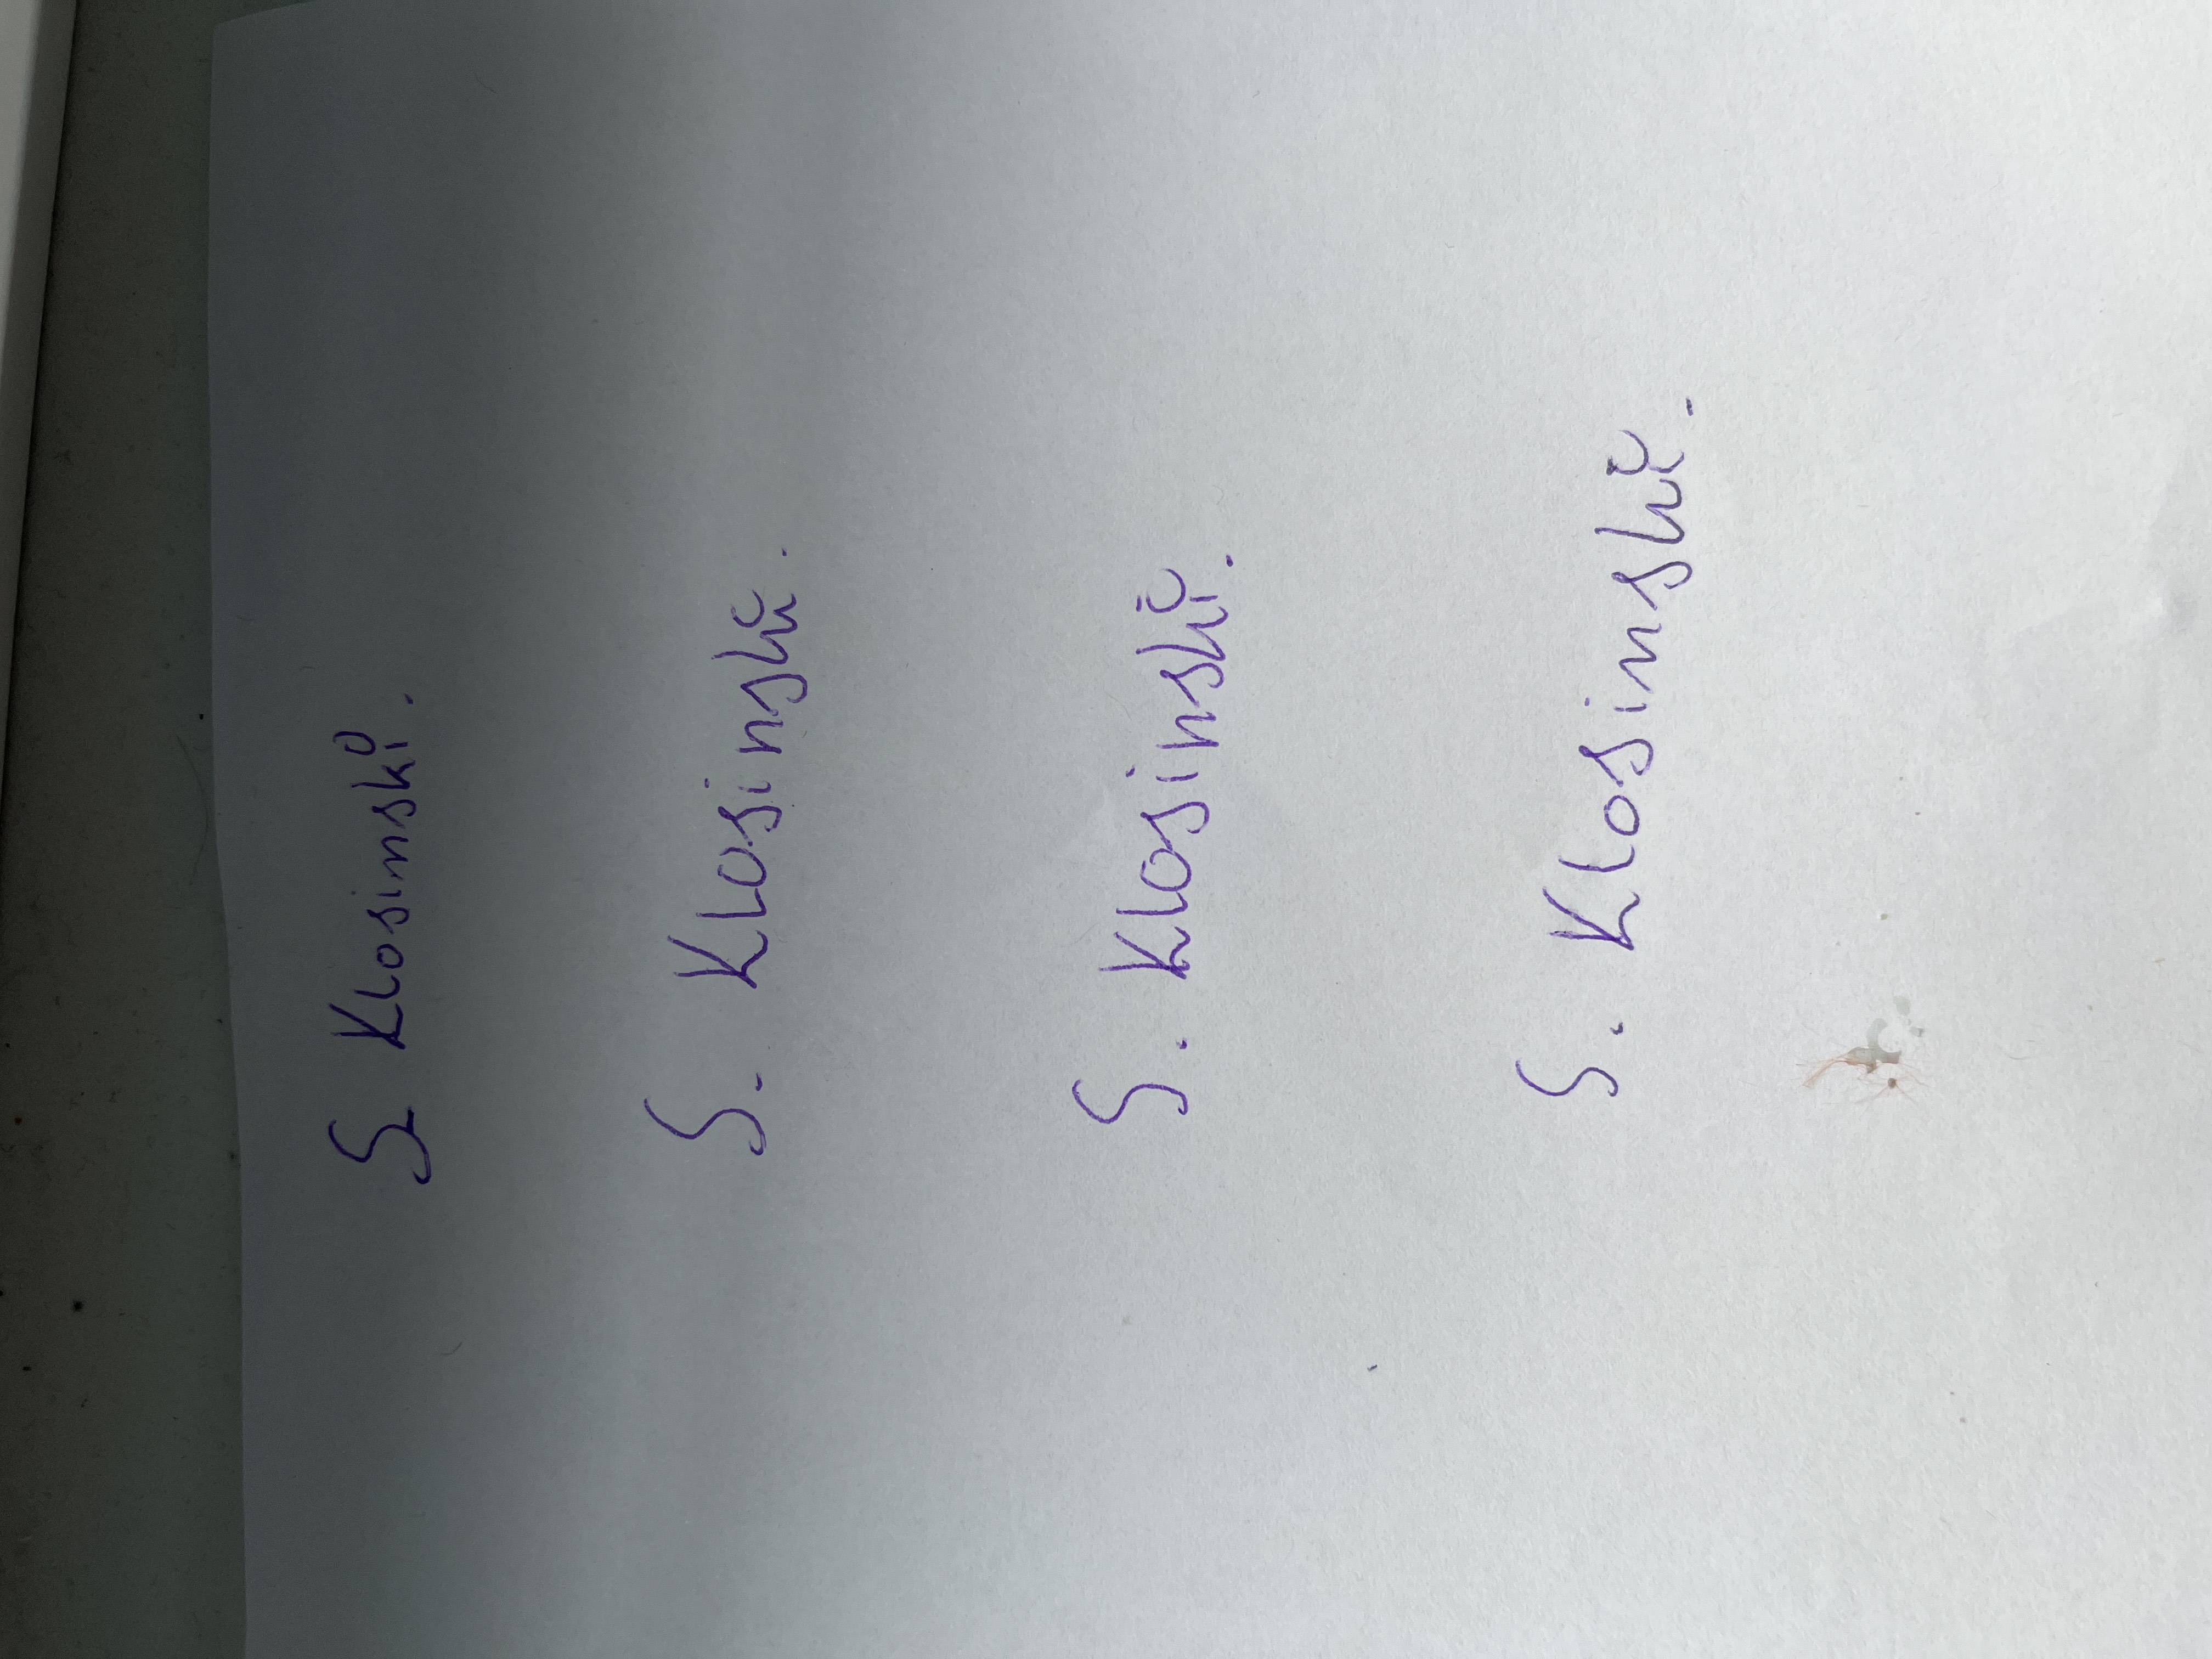 S Klosinski.
S. Klosinski.
S. Klosinski.
S. Klosinski.